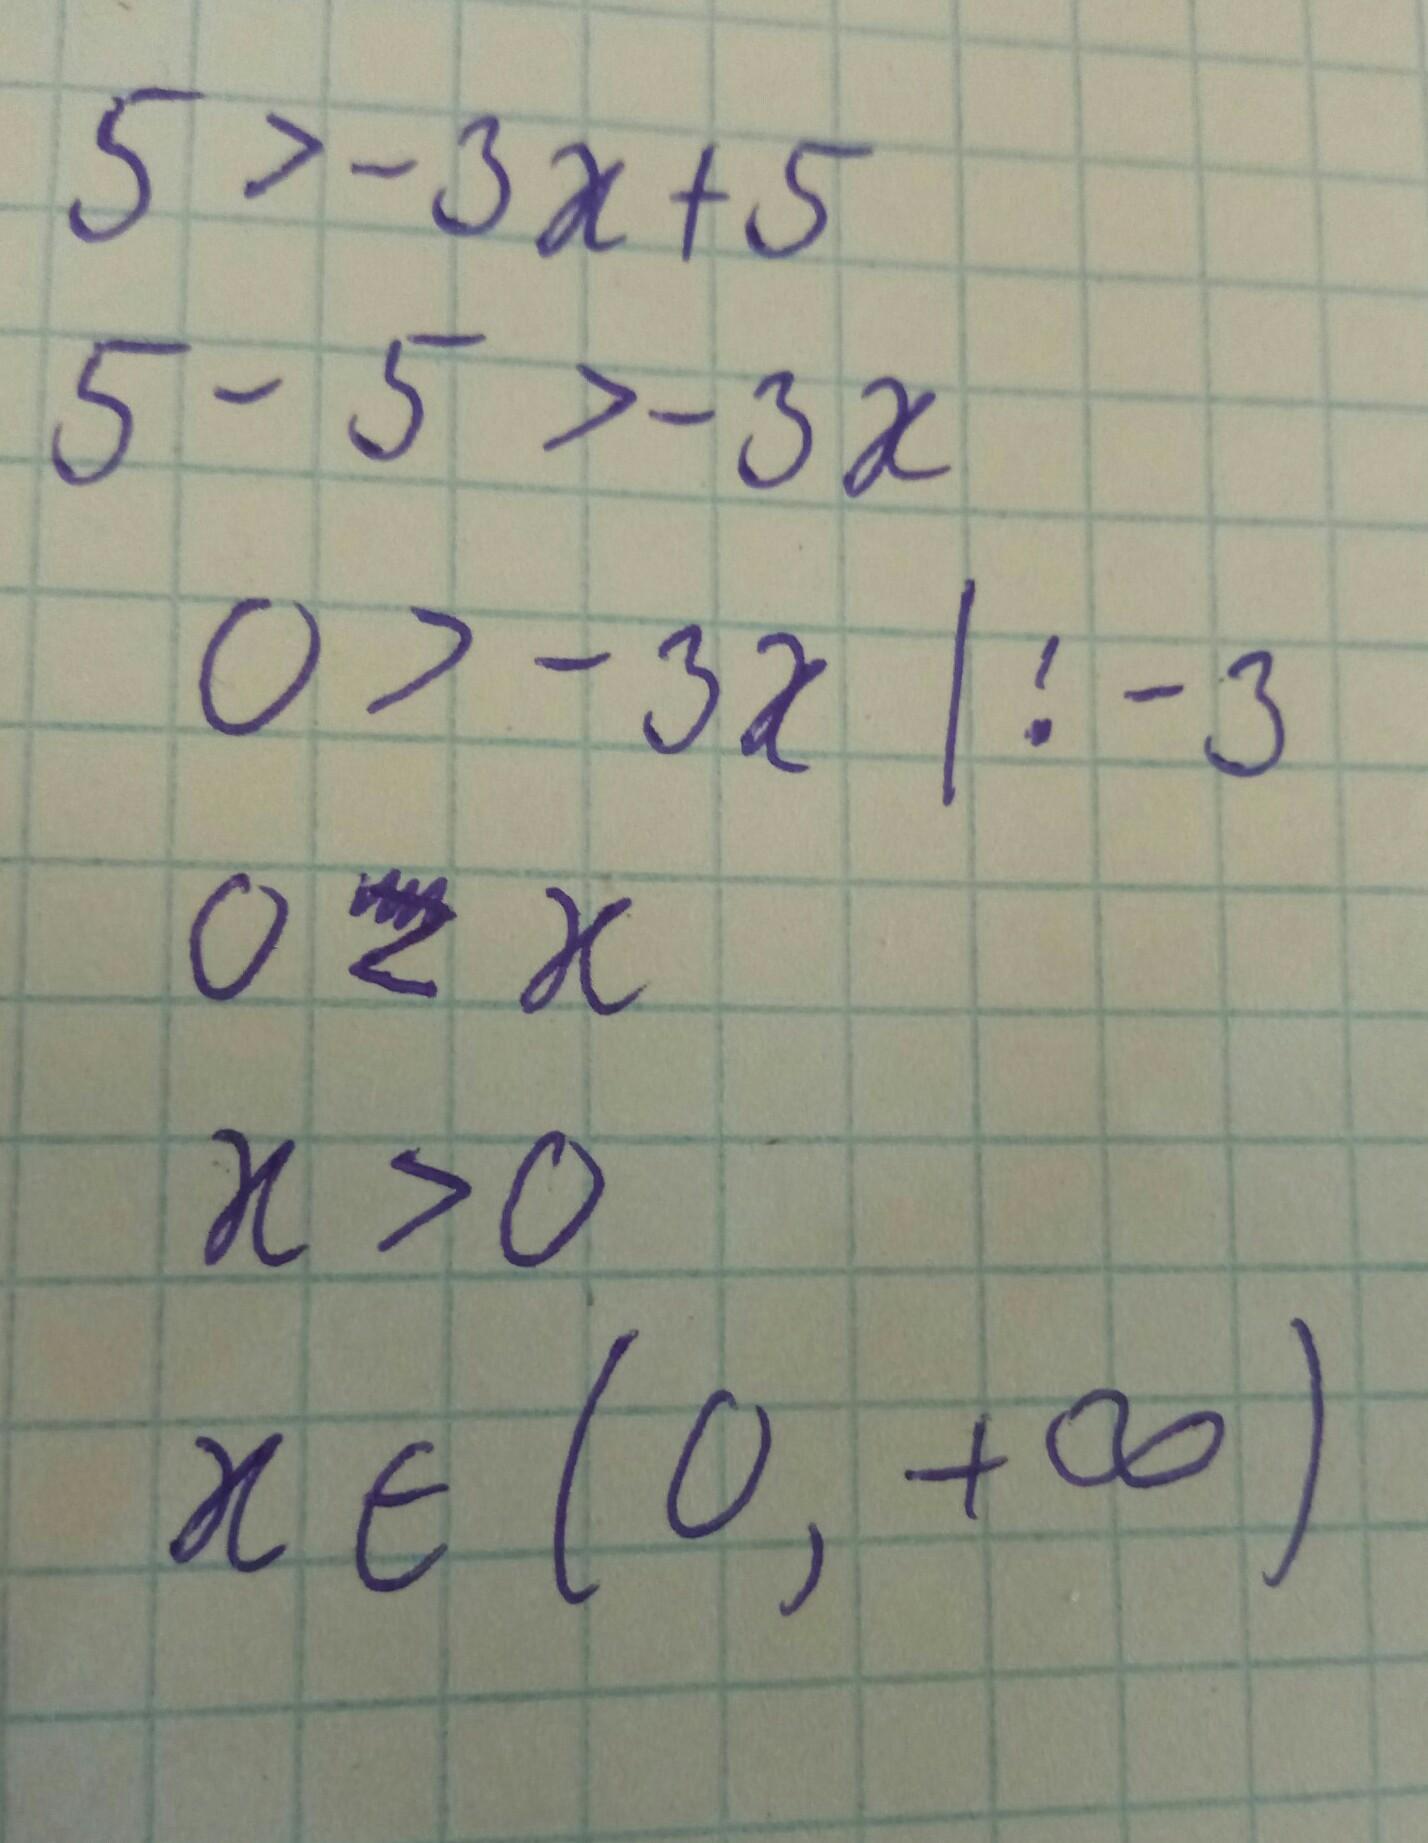 5 > -3x + 5
5 - 5 > -3x
0 > -3x | : -3
0 < x
x > 0
x ∈ (0, +∞)